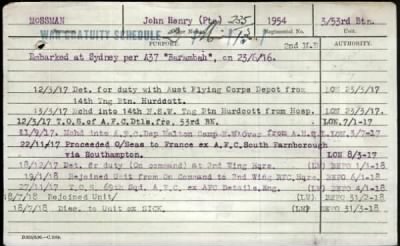 MOSSMAN John Henry (Pte) 1954 3/53rd Btn.
WAR GRATUITY SCHEDULE Regimental No.
PURPORT. 2nd M.D AUTHORITY.
Embarked at Sydney per A37 "Barambah", on 23/6/16.
12/3/17 Det. for duty with Aust Flying Corps Depot from LON 23/3/17.
14th Tng Btn. Hurdcott.
13/3/17 Mchd into 14th N.S.W. Tng Btn Hurdcott from Hosp. LON 23/3/17.
12/3/17 T.O.S. of A.F.C. Dtls. fre. 53rd BN. LON. 7/1-17
Mchd into A.F.C. Dep Halton Camp from LON. 3/7-17
22/11/17 Proceeded O/Seas to France ex A.F.C. South Farnborough
via Southampton. LON 8/3-17
18/12/17 Det. fr duty (On command) at 2nd Wing Hqrs. BEFO 1/1-18
19/1/18 Rejoined Unit from On Command to 2nd Wing RFC, Hqrs. BEFO 6/1-18
27/11/17 T.O.S. 69th Sqd. A.F.C. ex AFC Details, Eng. BEFO 4/1-18
/7/18 Rejoined Unit BEFO 31/2-18
18/7/18 to Unit ex SICK. BEFO 31/3-18